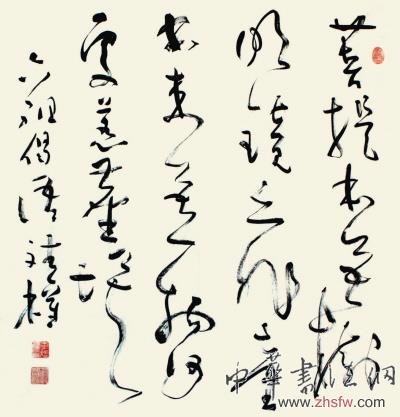 菩提本無樹
明鏡亦非臺
本来無一物何
處惹塵埃
六祖偈語
中華書法網
www.zhsfw.com